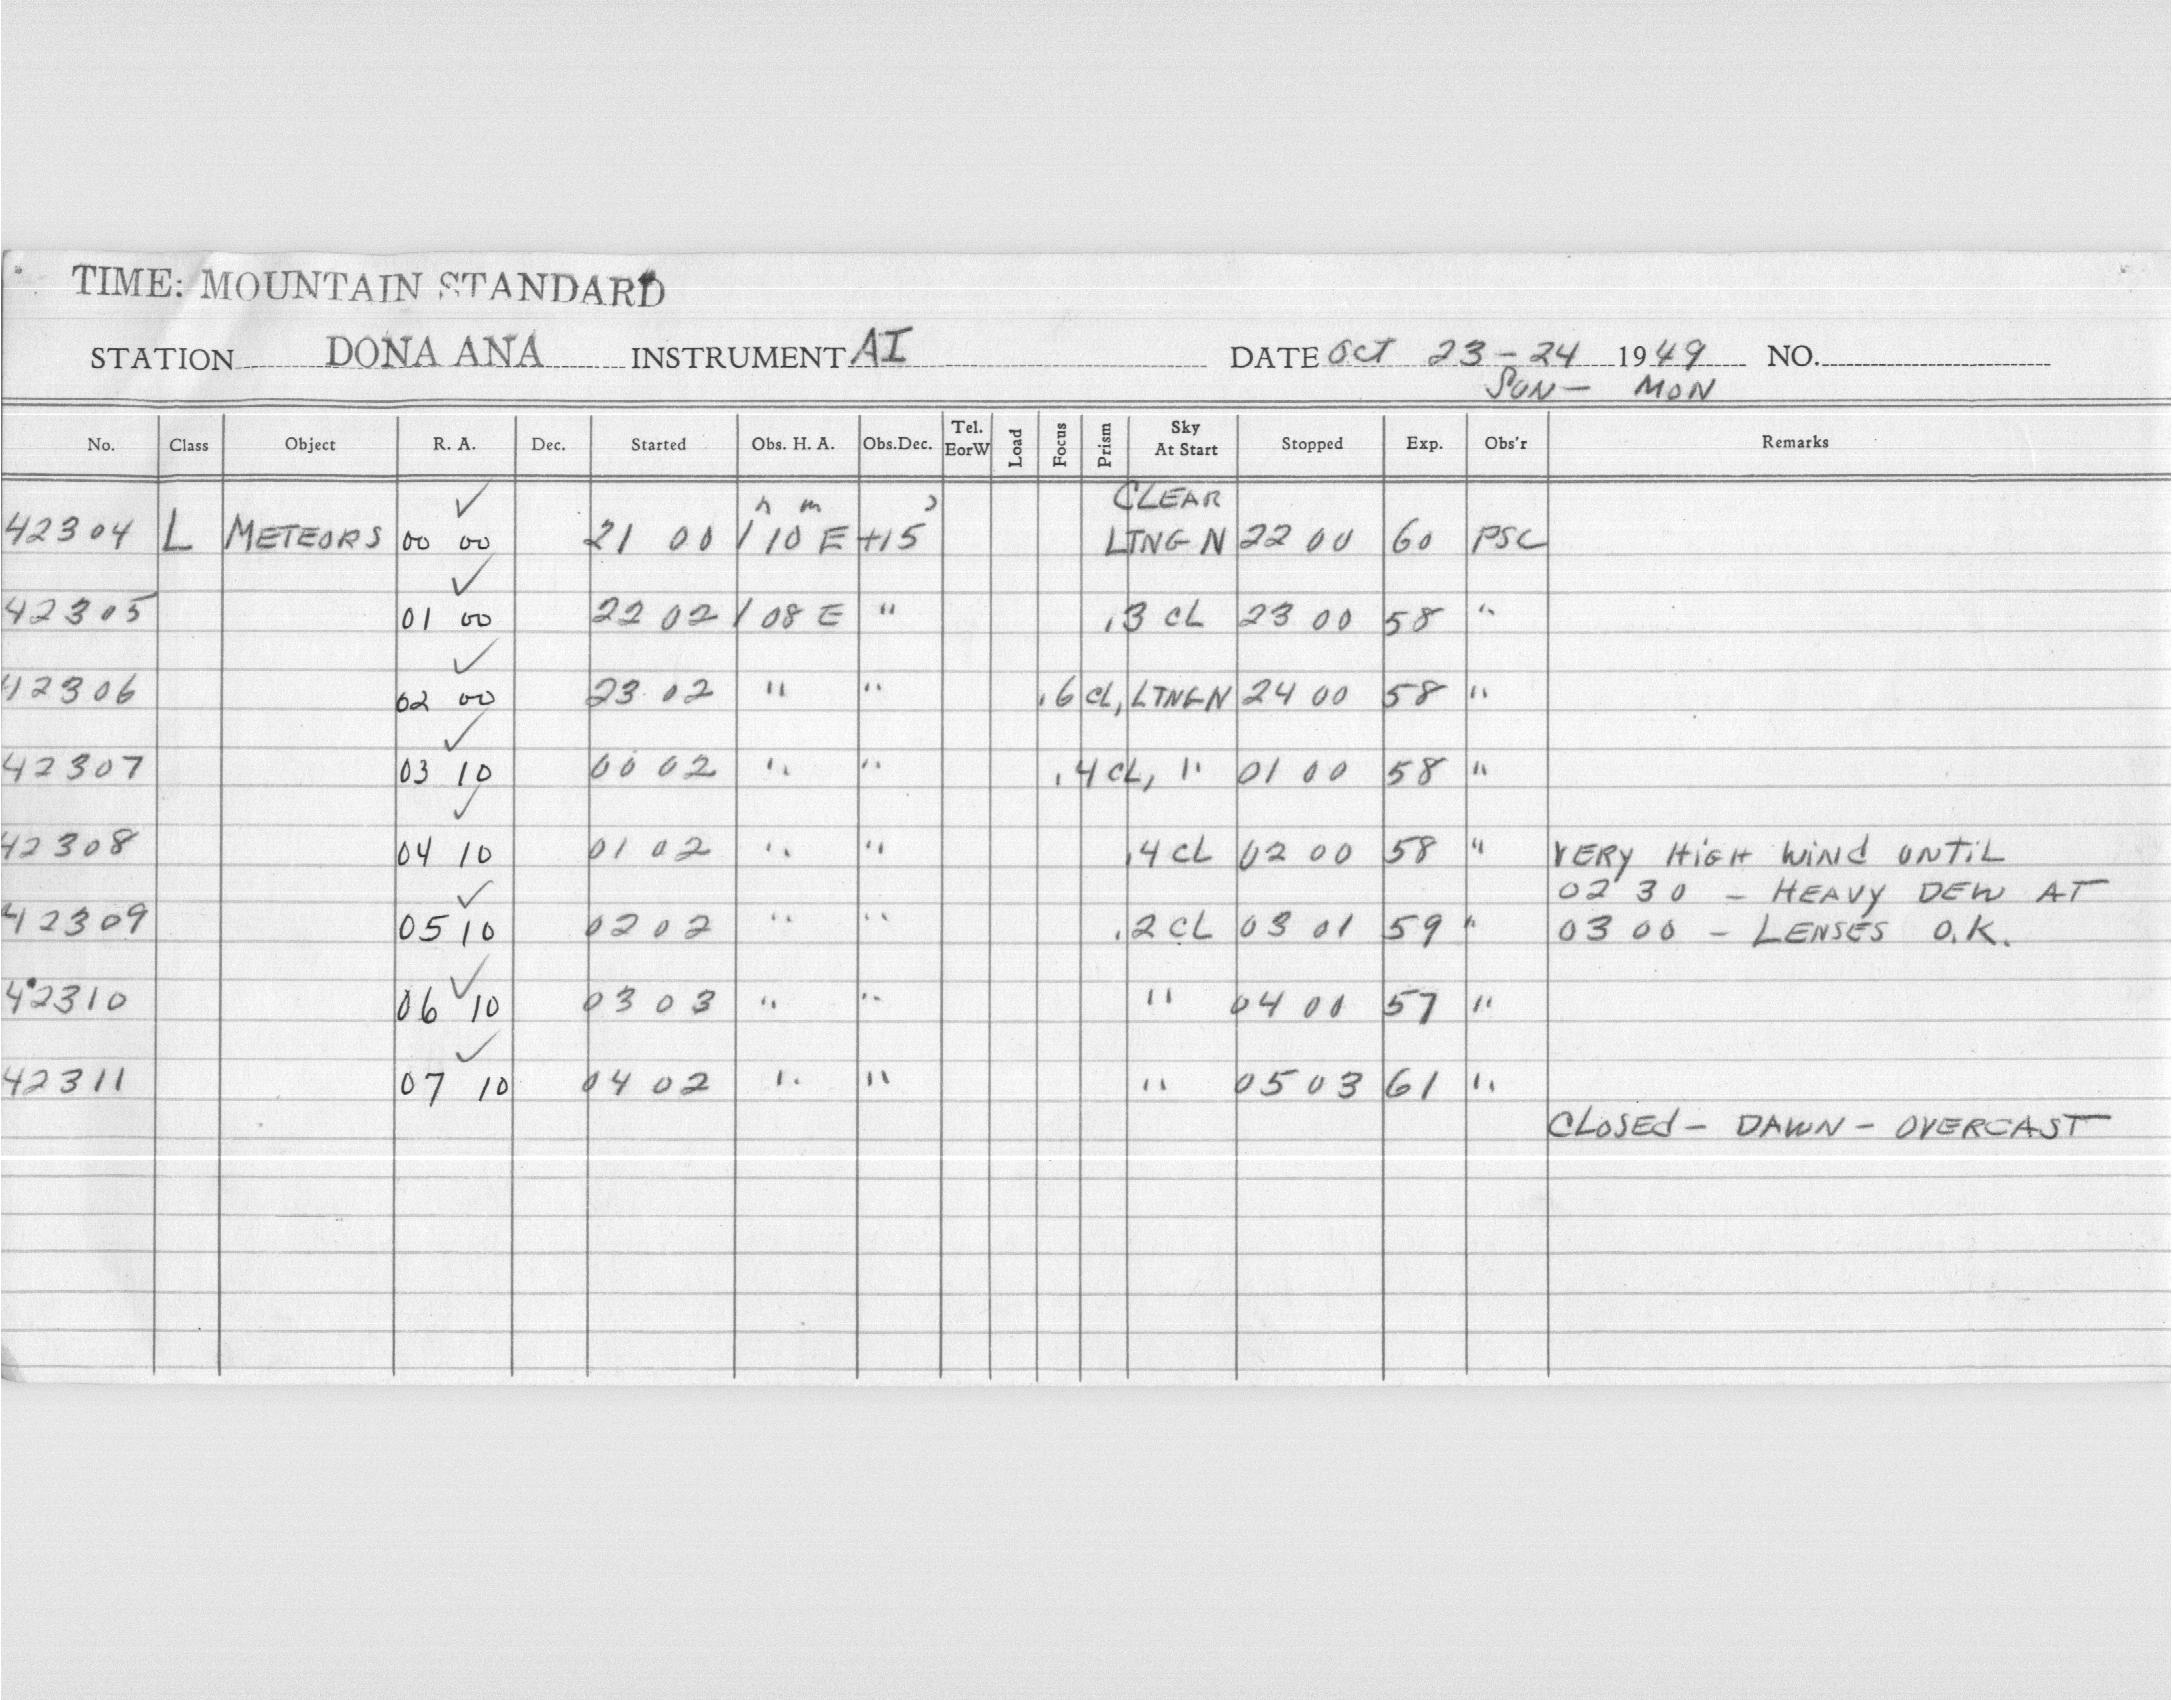 TIME: MOUNTAIN STANDARD
STATION DONA ANA INSTRUMENT AI DATE OCT 23-24 1949 NO.
SUN- MON
No. Class Object R. A. Dec. Started Obs. H. A. Obs.Dec. Tel. EorW Load Focus Prism Sky At Start Stopped Exp. Obs'r Remarks
✓ h m ° CLEAR
42304 L METEORS 00 00 21 00 1 10 E +15 LTNG N 22 00 60 PSC
✓
42305 01 00 22 02 1 08 E " .3 CL 23 00 58 "
✓
42306 02 00 23 02 " " .6 CL, LTNG N 24 00 58 "
✓
42307 03 10 00 02 " " .4 CL, " 01 00 58 "
✓
42308 04 10 01 02 " " .4 CL 02 00 58 " VERY HIGH WIND UNTIL
✓ 02 30 - HEAVY DEW AT
42309 05 10 02 02 " " .2 CL 03 01 59 " 03 00 - LENSES O.K.
✓
42310 06 10 03 03 " " " 04 00 57 "
✓
42311 07 10 04 02 " " " 05 03 61 "
CLOSED - DAWN - OVERCAST